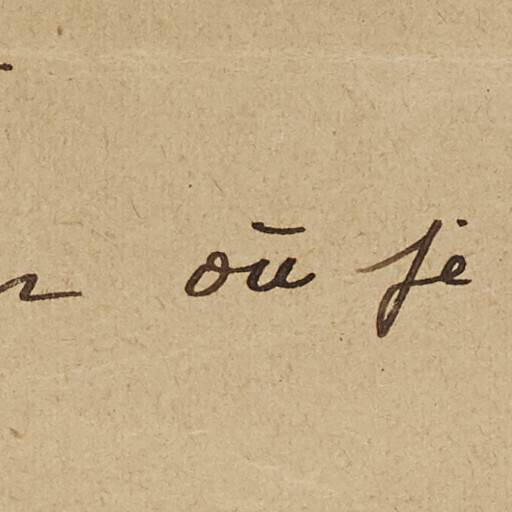 où je